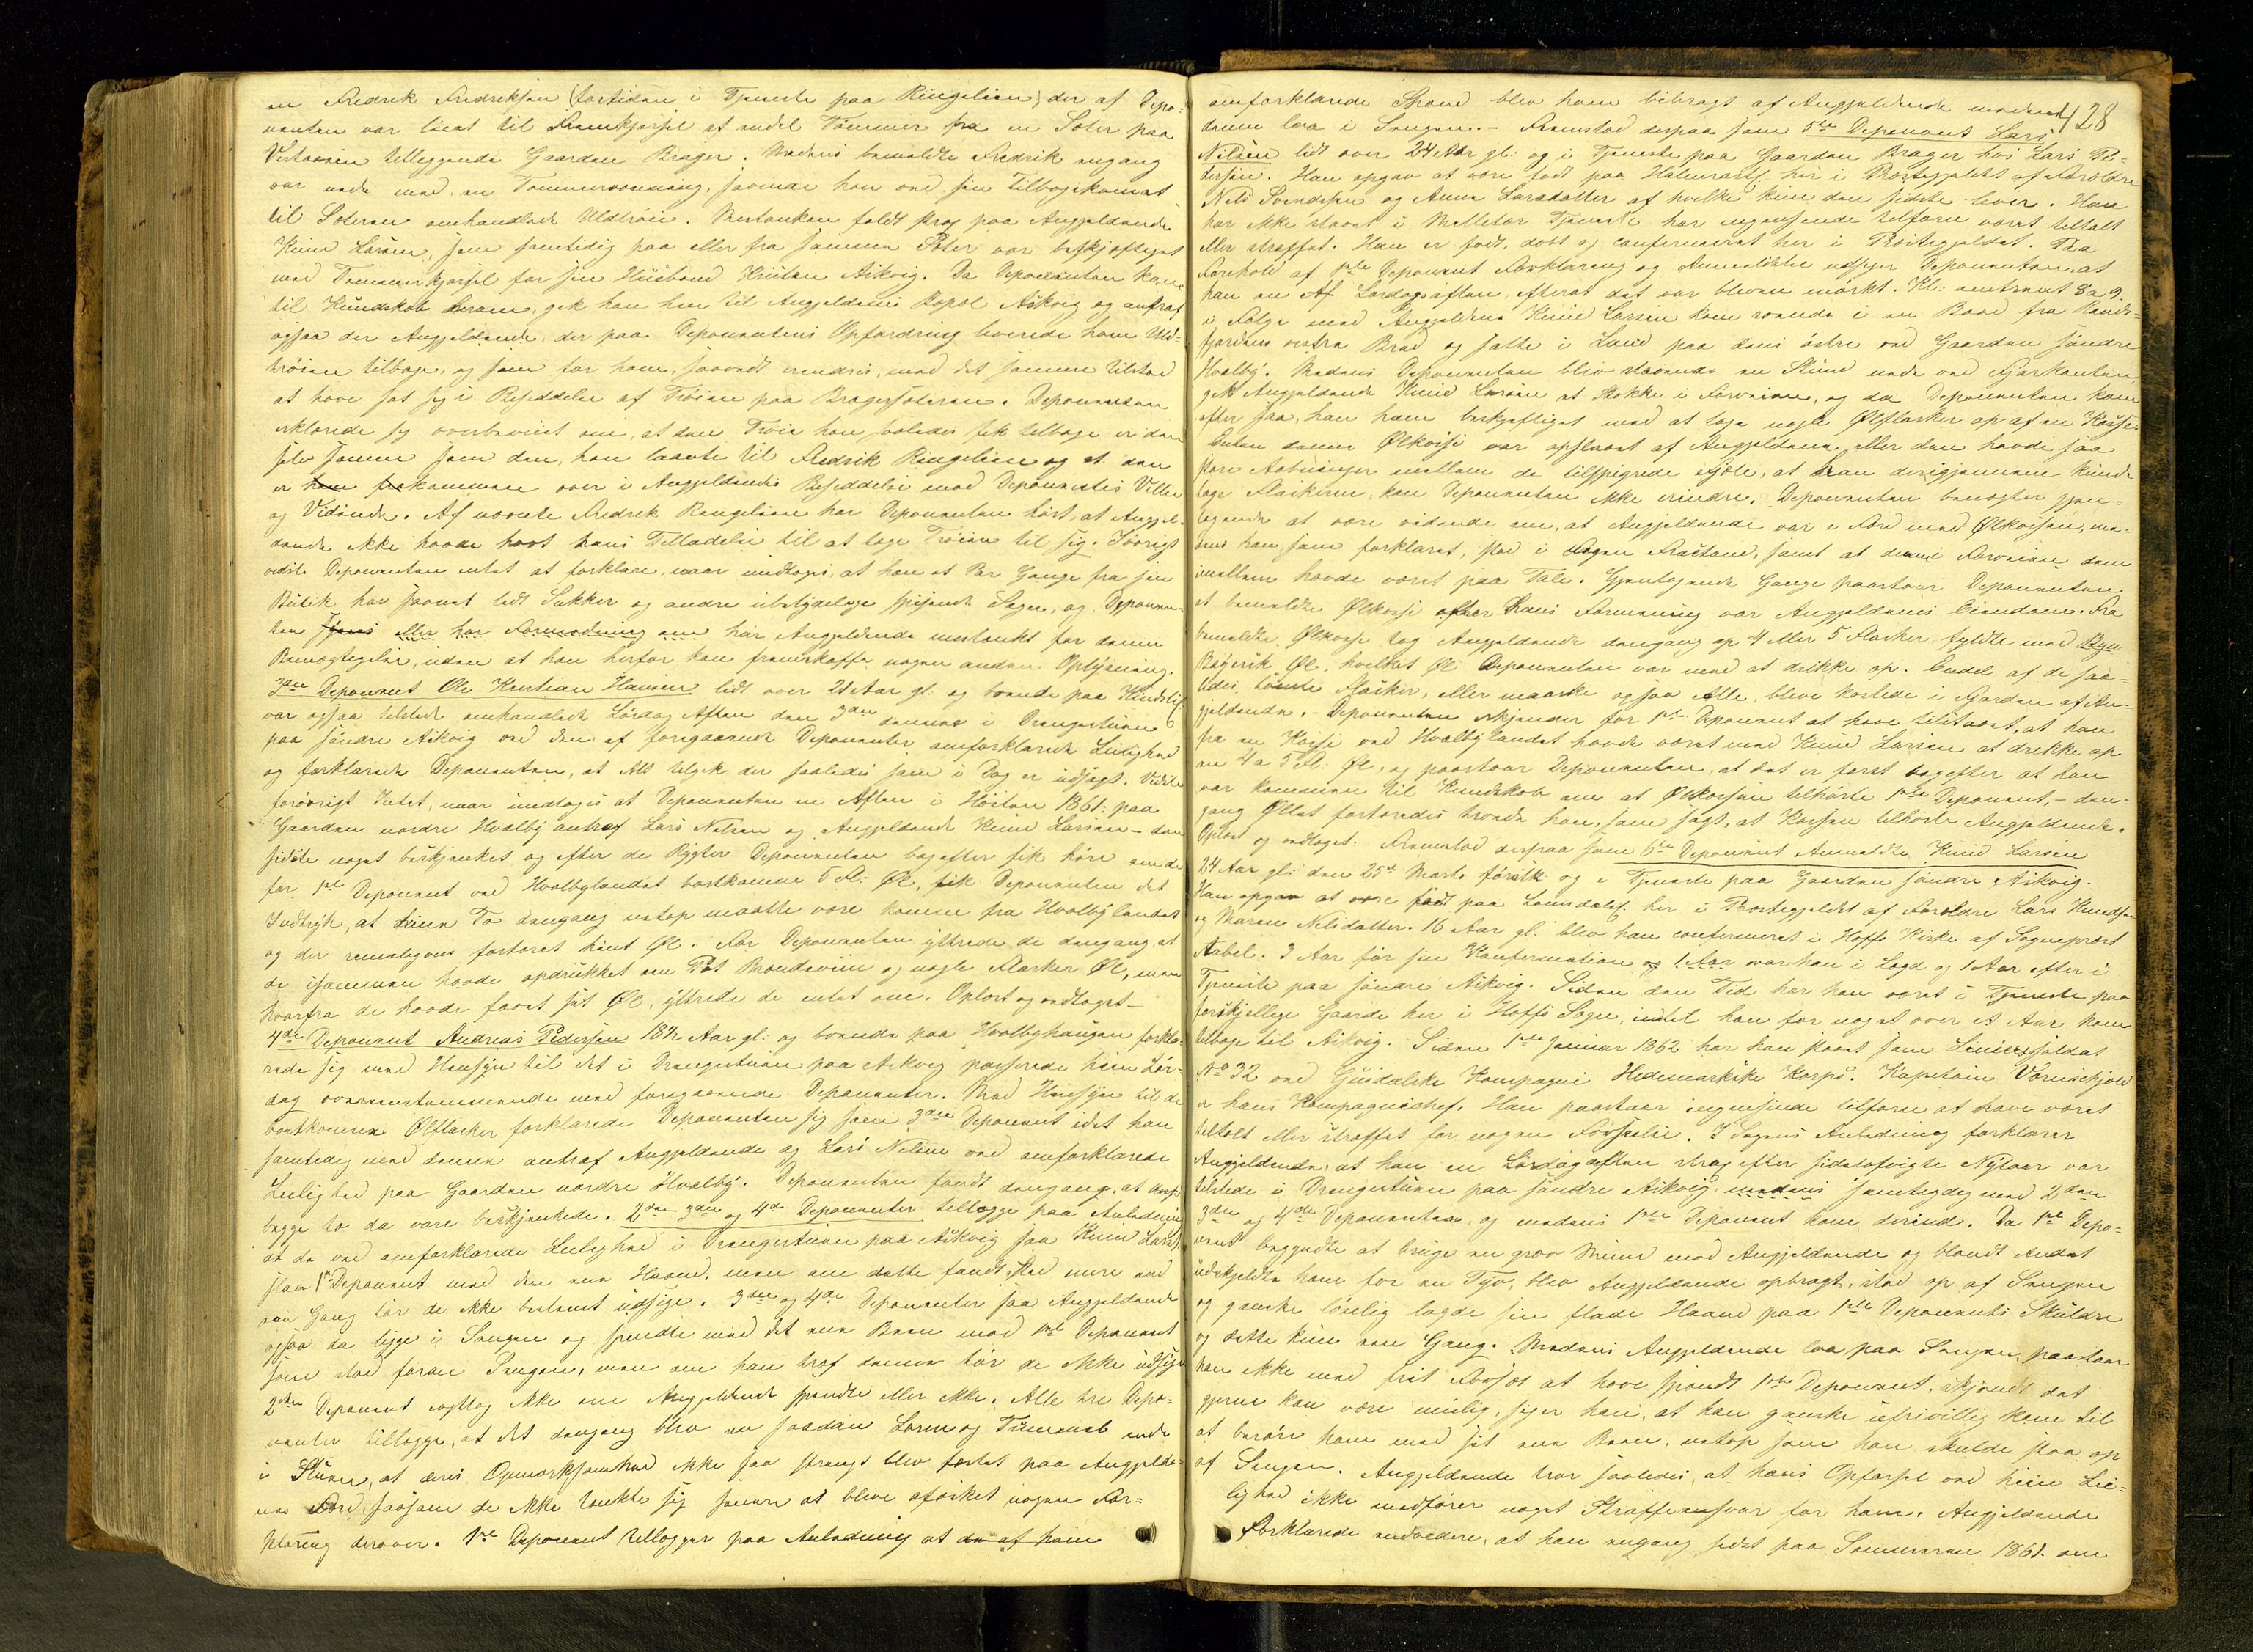 en Fredrik Fredriksen (fortiden i Tjeneste paa Ringelien) der af Depo-
nenten var leiet til Fremkjørsel af endel Tømmer fra en Sæter paa
Vestaasen tilliggende Gaarden Brager. Medens bemeldte Fredrik engang
var ude med en Tømmervending, savnede han ved sin Tilbagekomst
til Sæteren omhandlede Uldtrøie. Mistanken faldt strax paa Angjeldende
Knud Larsen, som samtidig paa eller fra samme Sæter var beskjæftiget
med Tømmerkjørsel for sin Husbond Kristen Aikvig. Da Deponenten kom
til Kundskab herom, gik han hen til Angjeldendes Bopæl Aikvig og antraf
ogsaa der Angjeldende, der paa Deponentens Opfordring leverede ham Uld-
trøien tilbage, og som for ham, saavidt erindres, med det samme tilstod
at have sat sig i Besiddelse af Trøien paa Bragersæteren. Deponenten
erklærede sig overbevist om, at den Trøie han saaledes fik tilbage er den
selv samme som den, han laante til Fredrik Ringelien og at den
er kommen over i Angjeldendes Besiddelse mod Deponentes Villie
og Vidende. Af nævnte Fredrik Ringelien har Deponenten hørt, at Angjel-
dende ikke havde havt hans Tilladelse til at tage Trøien til sig. Iøvrigt
vidste Deponenten intet at forklare, naar undtages, at han et Par Gange fra sin
Butik har savnet lidt Sukker og andre ubetydelige spisende Sager, og Deponen-
ten har Angjeldende mistænkt for denne
Bemægtigelse, uden at han herfor kan fremskaffe nogen anden Oplysning.
3die Deponent Ole Kristian Hansen lidt over 21 Aar gl: og boende paa
var ogsaa tilstede omhandlede Lørdag Aften den 3den dennes i Drengestuen
paa søndre Aikvig ved den af foregaaende Deponenter omforklarede Leilighed
og forklarede Deponenten, at Alt tilgik der saaledes som i Dag er udsagt. Vidste
forøvrigt Intet, naar undtages at Deponenten en Aften i Høsten 1861 paa
Gaarden nordre Hvalby antraf Lars Nilsen og Angjeldende Knud Larsen – den
sidste noget beskjænket og efter de Rygter Deponenten bagefter fik høre om de
for 1ste Deponent ved Hvalbylandet bortkomne 5 Fl. Øl, fik Deponenten det
Indtryk, at hine To dengang netop maatte være komne fra Hvalbylandet
og der rimeligvis fortæret hint Øl. For Deponenten yttrede de dengang, at
de isammen havde opdrukket en Pot Brændeviin og nogle Flasker Øl, men
hvorfra de havde faaet sit Øl, yttrede de intet om. Oplæst og vedtaget –
4de Deponent Andreas Pedersen 18½ Aar gl: og boende paa Hvalbyhaugen forkla-
rede sig med Hensyn til det i Drengestuen paa Aikvig passerede hiin Lør-
dag overensstemmende med foregaaende Deponenter. Med Hensyn til de
bortkomne Ølflasker forklarede Deponenten sig som 3die Deponent idet han
samtidig med denne antraf Angjeldende og Lars Nilsen ved omforklarede
Leilighed paa Gaarden nordre Hvalby. Deponenten fandt dengang, at
begge to da vare beskjænkede. 2den 3die og 4de Deponenter tillægge paa Anledning
at de ved omforklarede Leilighed i Drengestuen paa Aikvig saa Knud Larsen
slaa 1ste Deponent med den ene Haand, men om dette fandt Sted mere end
een Gang tør de ikke bestemt udsige. 3die og 4de Deponenter saa Angjeldende
ogsaa da ligge i Sengen og spændte med det ene Been mod 1ste Deponent
som stod foran Sengen, men om han traf denne tør de ikke udsige
2den Deponent iagttog ikke om Angjeldende spændte eller ikke. Alle tre Depo-
nenter tillægge, at det dengang blev en saadan Larm og Tummel inde
i Stuen, at deres Opmærksomhed ikke saa strengt blev fæstet paa Angjelde-
nes Færd, saasom de ikke tænkte sig senere at blive afæsket nogen For-
klaring derover. 1ste Deponent tillægger paa Anledning at de af ham
128
omforklarede Spænd blev ham bibragt af Angjeldende medens
denne laa i Sengen. – Fremstod derpaa som 5te Deponent Lars
Nilsen lidt over 24 Aar gl: og i Tjeneste paa Gaarden Brager hos Lars Pe-
dersen. Han opgav at være født paa her i Præstegjeldet af Forældre
Nils Svendsen og Anne Larsdatter af hvilke kun den sidste lever. Han
har ikke staaet i Militær Tjeneste har ingensinde tilforn været tiltalt
eller straffet. Han er født, døbt og confirmeret her i Præstegjeldet. Paa
Forehold af 1ste Deponent Forklaring og Anmeldelse udsiger Deponenten, at
han en Lørdagsaften, efterat det var bleven mørkt. Kl: omtrent 8 a 9.
i Følge med Angjeldende Knud Larsen kom roende i en Baad fra Rands-
fjordens vestre Bred og satte i Land paa dens østre ved Gaarden søndre
Hvalby. Medens Deponenten blev staaende en Stund nede ved Fjorkanten
gik Angjeldende Knud Larsen et Stykke i Forveien, og da Deponenten kom
efter saa, han ham beskjæftiget med at tage nogle Ølflasker op af en Kasse
Enten denne Ølkasse var opslaaet af Angjeldende, eller den havde saa
store Aabninger mellem de tilspigrede Fjøle, at han derigjennem kunde
tage Flaskerne, kan Deponenten ikke erindre. Deponenten benægter gjen-
tagende at være vidende om, at Angjeldende var i Færd med Ølkassen, me-
dens han som forklaret, stod i nogen Frastand, samt at denne i Forveien dem
imellem havde været paa Tale. Gjentagende Gange paastaar Deponenten
at bemeldte Ølkasse efter hans Formening var Angjeldendes Eiendom. Fra
bemeldte Ølkasse tog Angjeldende dengang op 4 eller 5 Flasker fyldte med
Bayersk Øl, hvilket Øl Deponenten var med at drikke op. Endel af de saa-
ledes tømte Flasker, eller maaske ogsaa Alle, bleve kastede i Fjorden af An-
gjeldende. – Deponenten erkjender for 1ste Deponent at have tilstaaet, at han
fra en Kasse ved Hvalbylandet havde været med Knud Larsen at drikke op
en 4 a 5 Fl: Øl, og paastaar Deponenten, at det er først bagefter at han
var kommen til Kundskab om at Ølkassen tilhørte 1ste Deponent, – den-
gang Øllet fortæredes troede han, som sagt, at Kassen tilhørte Angjeldende.
Oplæst og vedtaget. Fremstod derpaa som 6te Deponent Anmeldte Knud Larsen
24 Aar gl: den 25de Marts førstk: og i Tjeneste paa Gaarden søndre Aikvig.
Han opgav at være født paa her i Præstegjeldet af Forældre Lars Knudsen
og Maren Nilsdatter. 16 Aar gl. blev han confirmeret i Hoffs Kirke af Sogneprest
Aabel. 3 Aar før sin Konfirmation og 1 Aar var han i Lægd og 1 Aar efter i
Tjeneste paa søndre Aikvig. Siden den Tid har han været i Tjeneste paa
forskjellige Gaarde her i Hoffs Sogn, indtil han for noget over et Aar kom
tilbage til Aikvig. Siden 1ste Januar 1862 har han staaet som Liniesoldat
No 32 ved Gusdalske Kompagni Hedemarkske Korps. Kapitain Vornschjold
er hans Kompagnichef. Han paastaar ingensinde tilforn at have været
tiltalt eller straffet for nogen Forseelse. I Sagens Anledning forklarer
Angjeldende, at han en Lørdagaften strax efter sidstafvigte Nytaar var
tilstede i Drengestuen paa søndre Aikvig, samtidig med 2den
3die og 4de Deponenter, og medens 1ste Deponent kom derind. Da 1ste Depo-
nent begyndte at bruge en grov Mund mod Angjeldende og blandt Andet
udskjeldte ham for en Tyv, blev Angjeldende opbragt, stod op af Sengen
og ganske løselig lagde sin flade Haand paa 1ste Deponents Skuldre
og dette kun een Gang. Medens Angjeldende laa paa Sengen, paastaar
han ikke med frit Forsæt at have spændt 1ste Deponent, skjøndt det
gjerne kan være mulig, siger han, at han ganske ufrivillig kom til
at berøre ham med sit ene Been, netop som han skulde staa op
af Sengen. Angjeldende tror saaledes, at hans Opførsel ved hiin Lei-
lighed ikke medfører noget Straffeansvar for ham. Angjeldende
forklarede endvidere, at han engang sidst paa Sommeren 1861. om